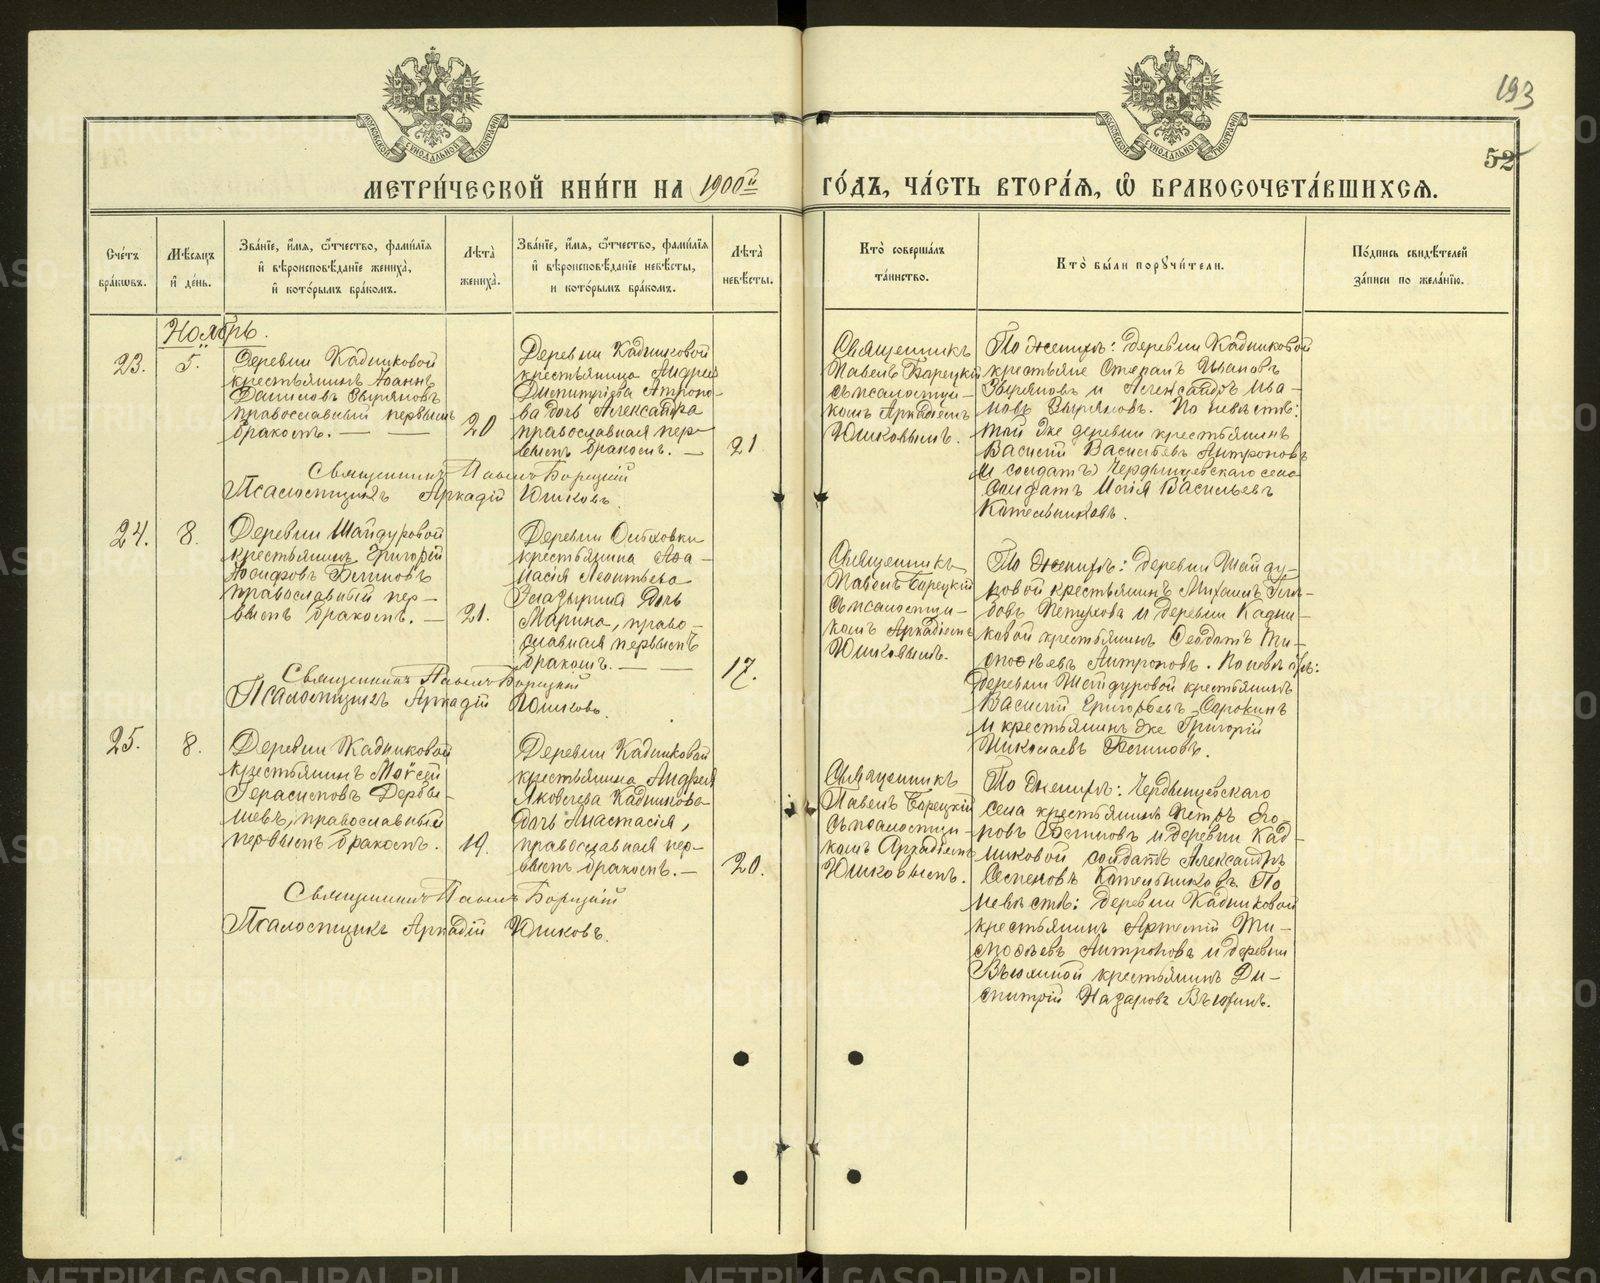 193
52
МОСКОВСКОЙ СѴНОДАЛЬНОЙ ТИПОГРАФІИ
МОСКОВСКОЙ СѴНОДАЛЬНОЙ ТИПОГРАФІИ
МЕТРИ́ЧЕСКОЙ КНИ́ГИ НА 1900й ГО́ДЪ, ЧА́СТЬ ВТОРА́Ѧ, Ѽ БРАКОСОЧЕТА́ВШИХСѦ.
Сче́тъ
бра́кѡвъ.
Мѣ́сѧцъ
и҆ де́нь.
Зва́нїе, и҆́мѧ, ѻ҆́тчество, фами́лїѧ
и҆ вѣроисповѣ́данїе жениха̀,
и҆ кото́рымъ бра́комъ.
Лѣта̀
жениха̀.
Зва́нїе, и҆́мѧ, ѻ҆́тчество, фами́лїѧ
и҆ вѣроисповѣ́данїе невѣ́сты,
и кото́рымъ бра́комъ.
Лѣта̀
невѣ́сты.
Кто̀ соверша́лъ
та́инство.
Кто̀ бы́ли порꙋчи́тели.
По́дпись свидѣ́телей
за́писи по жела́нїю.
Ноябрь.
23.
5.
Деревни Кадниковой
крестьянинъ Іоаннъ
Зыряновъ
православный первымъ
бракомъ.
20
Деревни Кадниковой
крестьянина Андрея
Димитріева Антропо-
ва дочь Александра
православная пер-
вымъ бракомъ.
21
Священникъ
Павелъ Борецкій
съ псаломщи-
комъ Аркадіемъ
Юшковымъ.
По женихѣ: деревни Кадниковой
крестьяне Стефанъ Ивановъ
Зыряновъ и Александръ Ива-
новъ Зыряновъ. По невѣстѣ:
той же деревни крестьянинъ
Василій Васильевъ Антроповъ
и солдатъ Чердынцевскаго села
Илія Васильевъ
Котельниковъ.
Священникъ Павелъ Борецкій
Псаломщикъ Аркадій Юшковъ.
24.
8.
Деревни Шайдуровой
крестьянинъ Григорій
Іосифовъ
православный пер-
вымъ бракомъ.
21.
Деревни
крестьянина Аѳа-
насія Леонтьева
дочь
Марина, право-
славная первымъ
бракомъ.
17.
Священникъ
Павелъ Борецкій
съ псаломщи-
комъ Аркадіемъ
Юшковымъ.
По женихѣ: деревни Шайду-
ровой крестьянинъ Михаилъ Глѣ-
бовъ Пѣтухова и деревни Кадни-
ковой крестьянинъ Ѳеодотъ Ти-
моѳеевъ Антроповъ. По невѣстѣ:
деревни Шайдуровой крестьянинъ
Василій Григорьевъ Сорокинъ
и крестьянинъ же Григорій
Николаевъ
Священникъ Павелъ Борецкій
Псаломщикъ Аркадій Юшковъ.
25.
8.
Деревни Кадниковой
крестьянинъ Моѵсей
Герасимовъ Дербы-
шевъ, православный
первымъ бракомъ.
19.
Деревни Кадниковой
крестьянина Андрея
Яковлева Кадникова
дочь Анастасія,
православная пер-
вымъ бракомъ.
20.
Священникъ
Павелъ Борецкій
съ псаломщи-
комъ Аркадіемъ
Юшковымъ.
По женихѣ: Чердынцевскаго
села крестьянинъ Петръ Его-
ровъ и деревни Кад-
никовой солдатъ Александръ
Семеновъ Котельниковъ. По
невѣстѣ: деревни Кадниковой
крестьянинъ Артемій Ти-
моѳеевъ Антроповъ и деревни
Вьюхиной крестьянинъ Ди-
митрій Назаровъ Вьюхинъ.
Священникъ Павелъ Борецкій
Псаломщикъ Аркадій Юшковъ.
METRIKI.GASO-URAL.RU